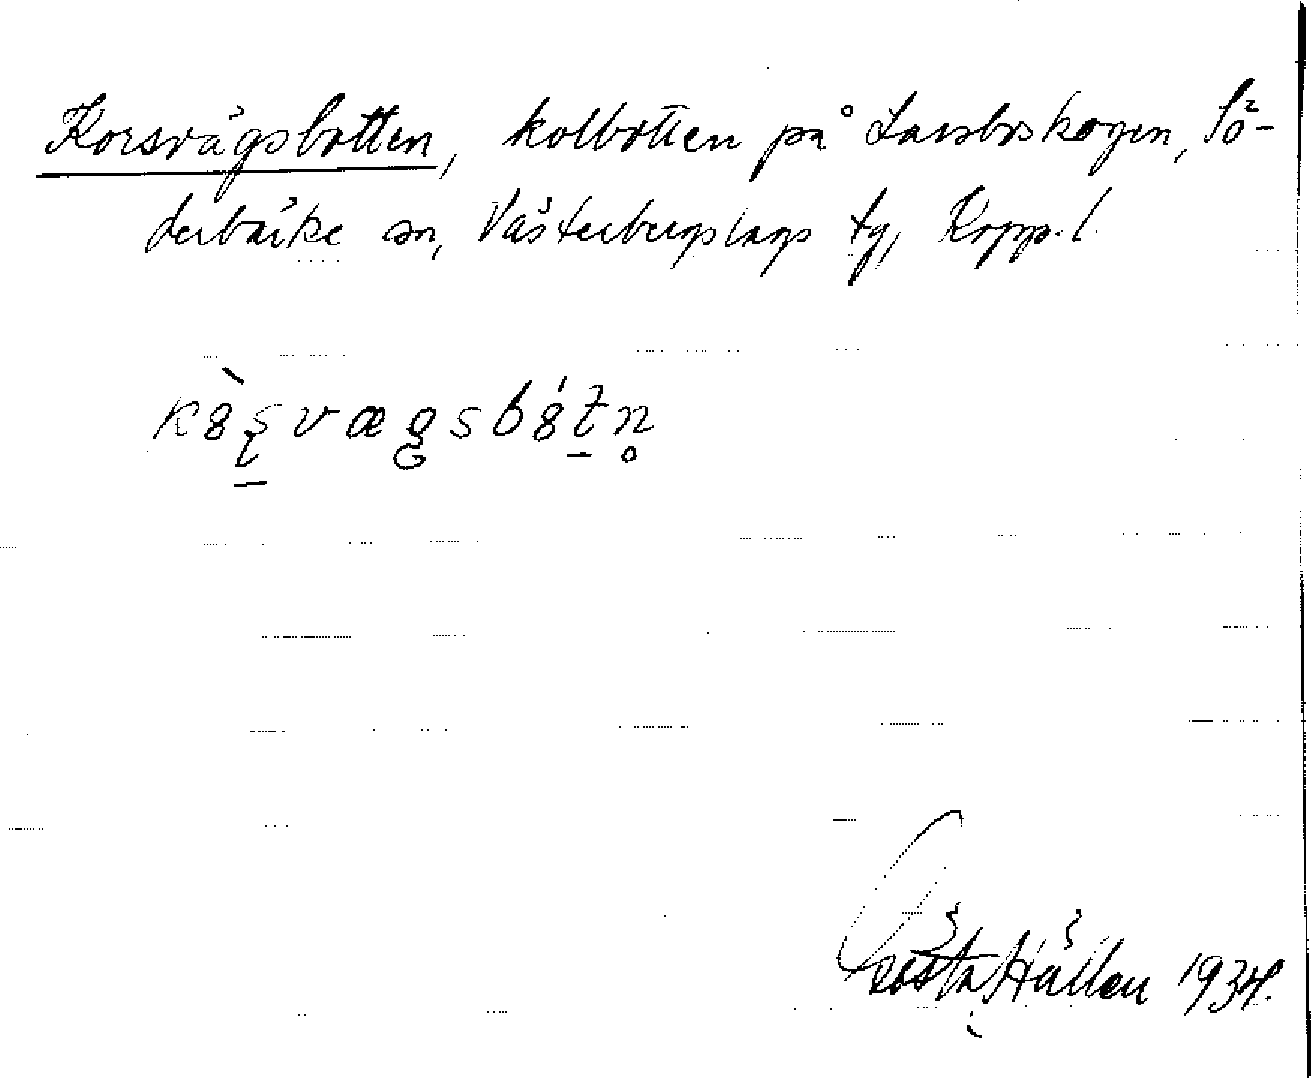 Korsvägsbotten, kolbotten på Larsboskogen, Sö-
derbärke sn, Västerbergslags tg, Kopp. l.
Gösta Hällen 1934.